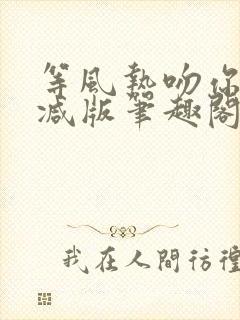 等風熱吻你
减版筆趣閣
我在人間彷徨